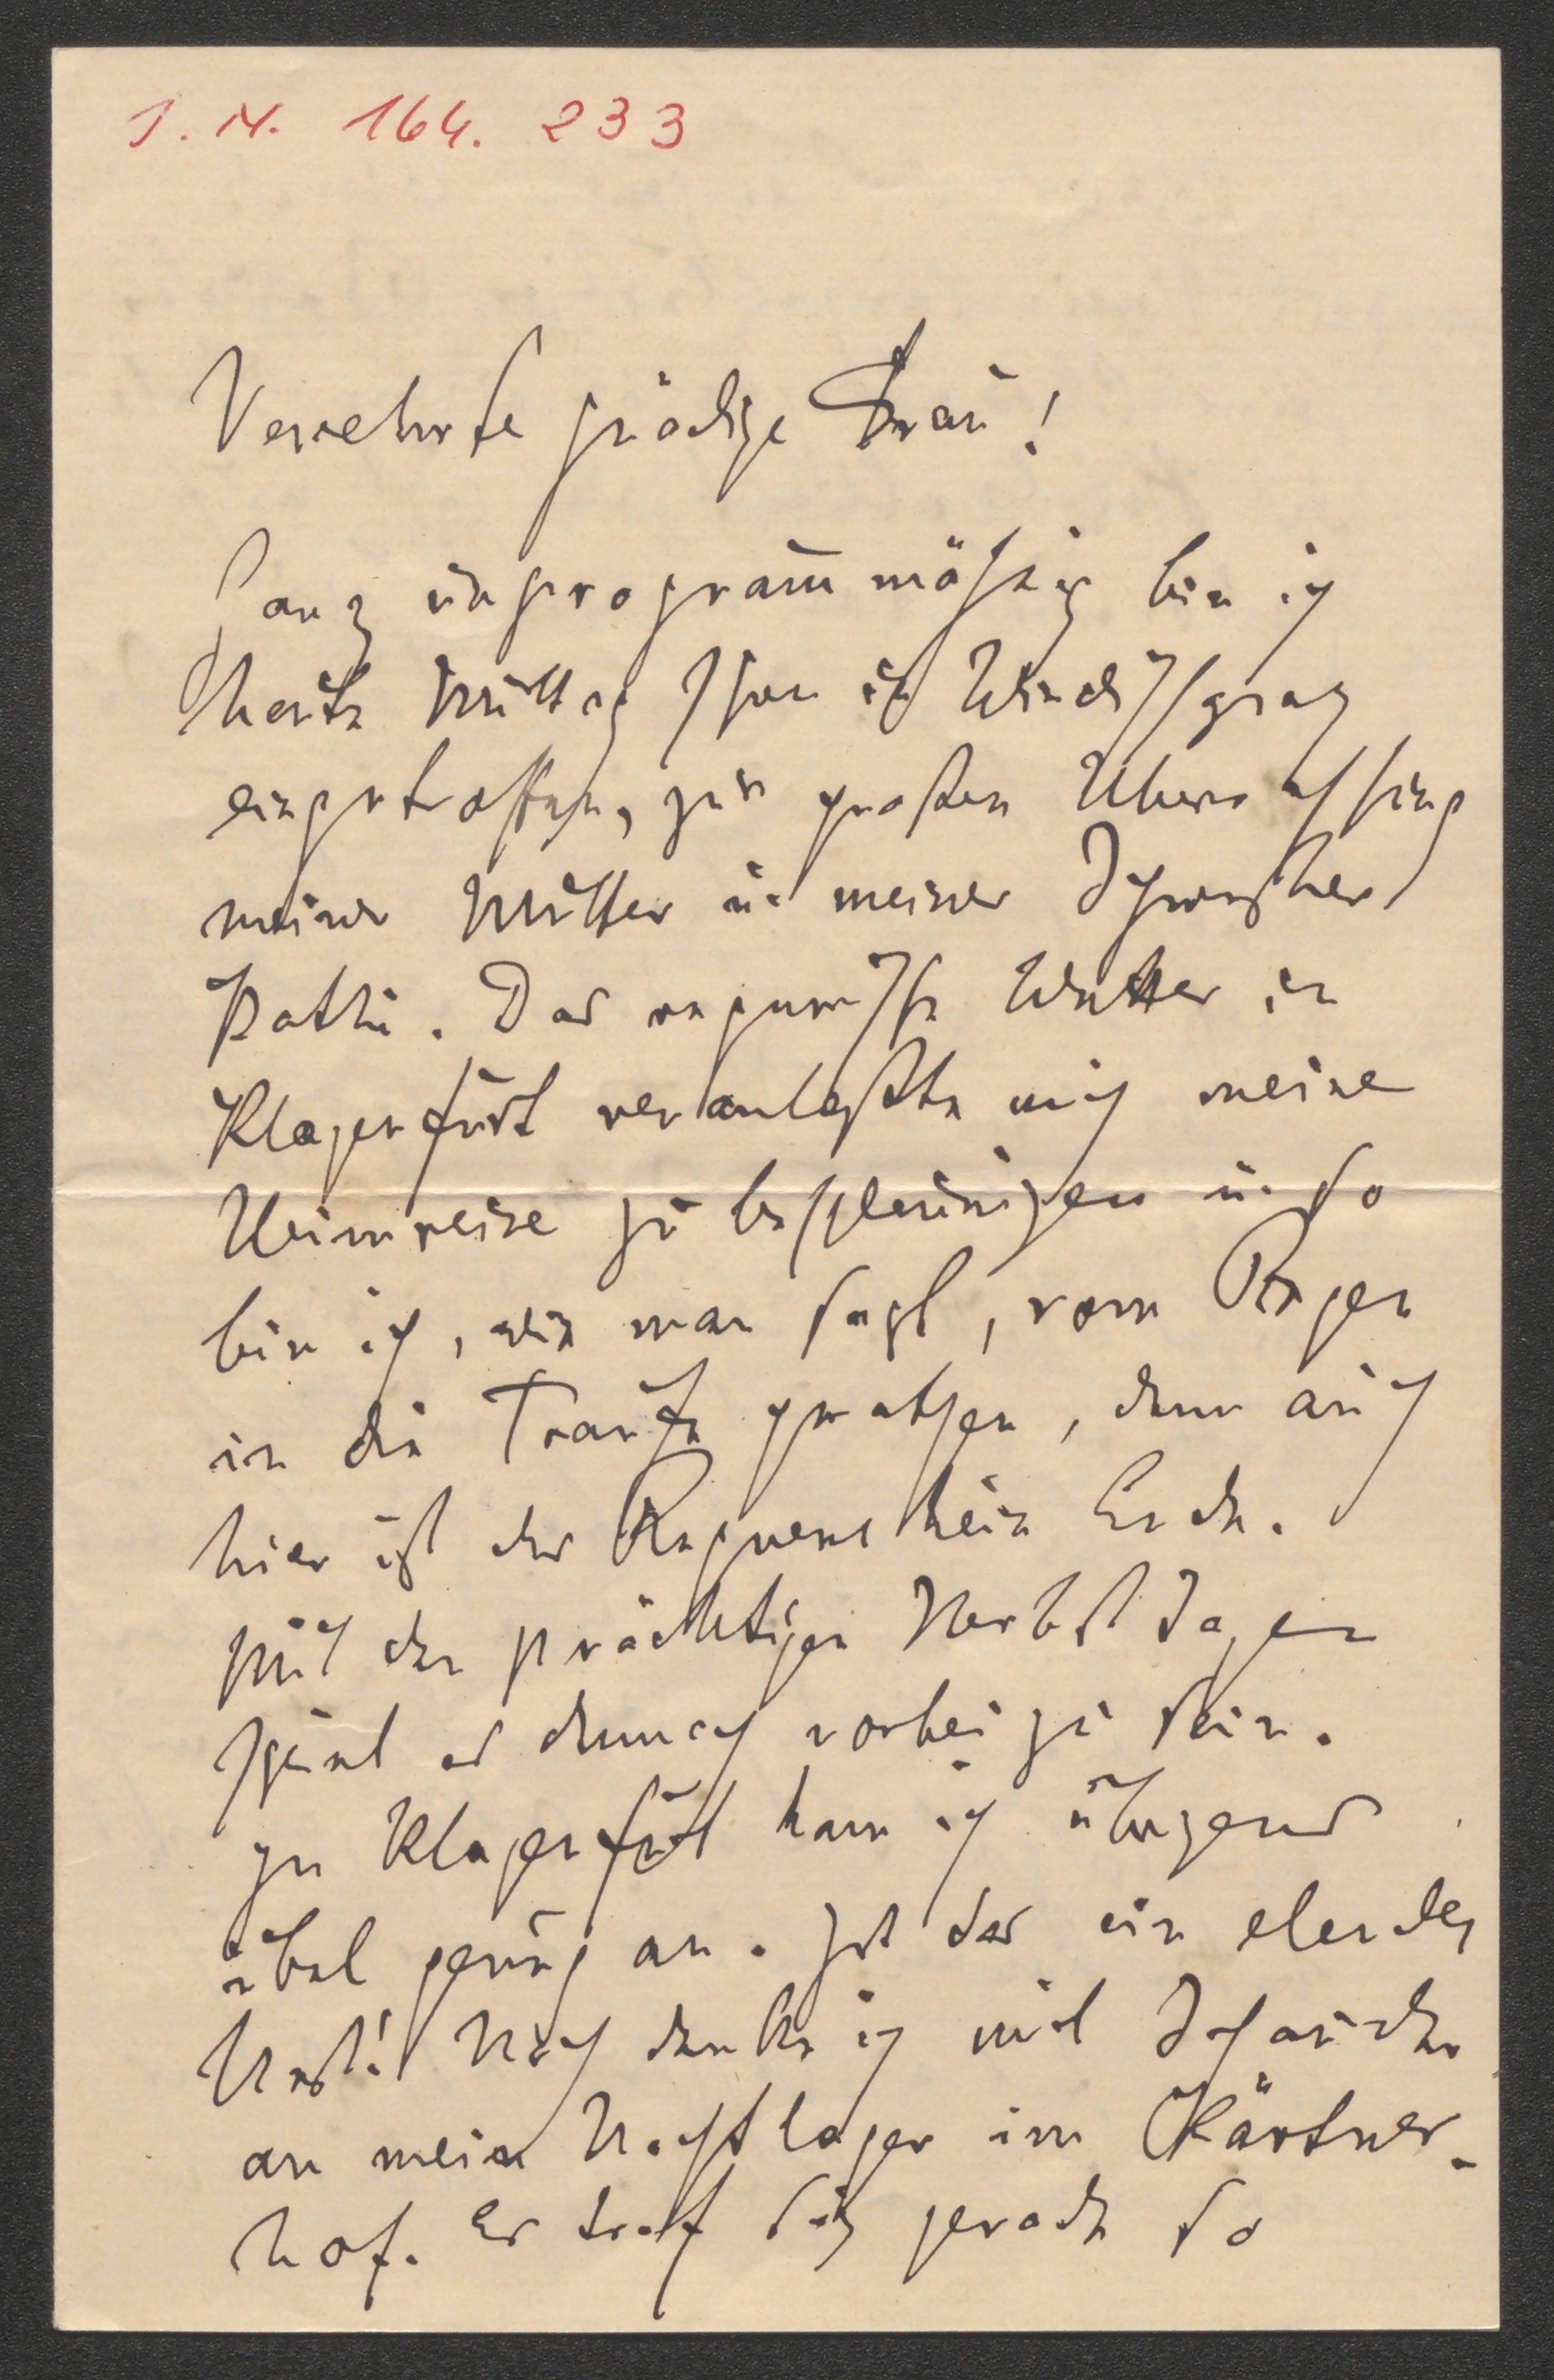 I. N. 164.233
Verehrte gnädige Frau!
Ganz unprogrammäßig bin ich
heute Mittag schon in Windischgraz
eingetroffen, zur großen Überraschung
meiner Mutter u. meiner Schwester
Kathi. Das regnerische Wetter in
Klagenfurt veranlaßte mich meine
Heimreise zu beschleunigen u. so
bin ich, wie man sagt, vom Regen
in die Traufe gerathen, denn auch
hier ist des Regnens kein Ende.
Mit den prächtigen Herbsttagen
scheint es demnach vorbei zu sein.
In Klagenfurt kam ich übrigens
übel genug an. Ist das ein elendes
Nest! Noch denke ich mit Schauder
an mein Nachtlager im Kärtner-
hof. Es traf sich gerade so